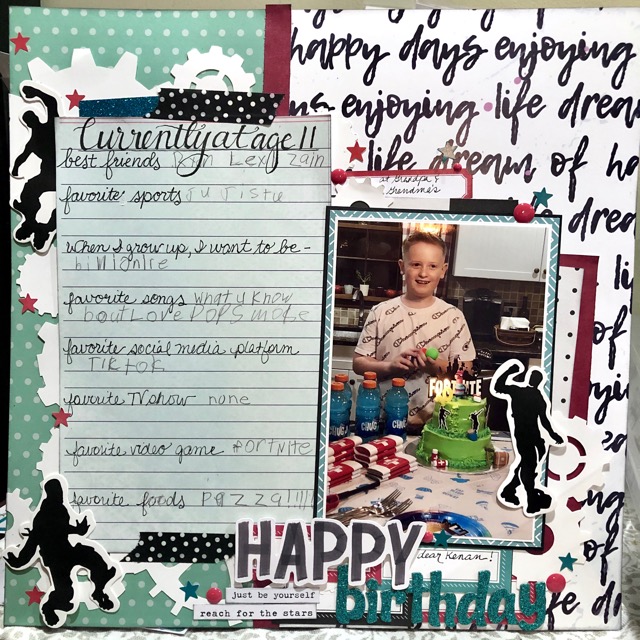 happy days enjoying
enjoying life dream
life dream of ha
drea
Currently at age 11
best friends Lex Zain
at Grandpa &
Grandma's
favorite sports
when I grow up, I want to be -
favorite songs what y know
bout Love POP SMOKE
favorite social media platform
TIKTOK
favorite TV show none
favorite video game FORTNITE
favorite foods pizza!!!!
FORTNITE
HAPPY
birthday
dear Kenan!
just be yourself
reach for the stars